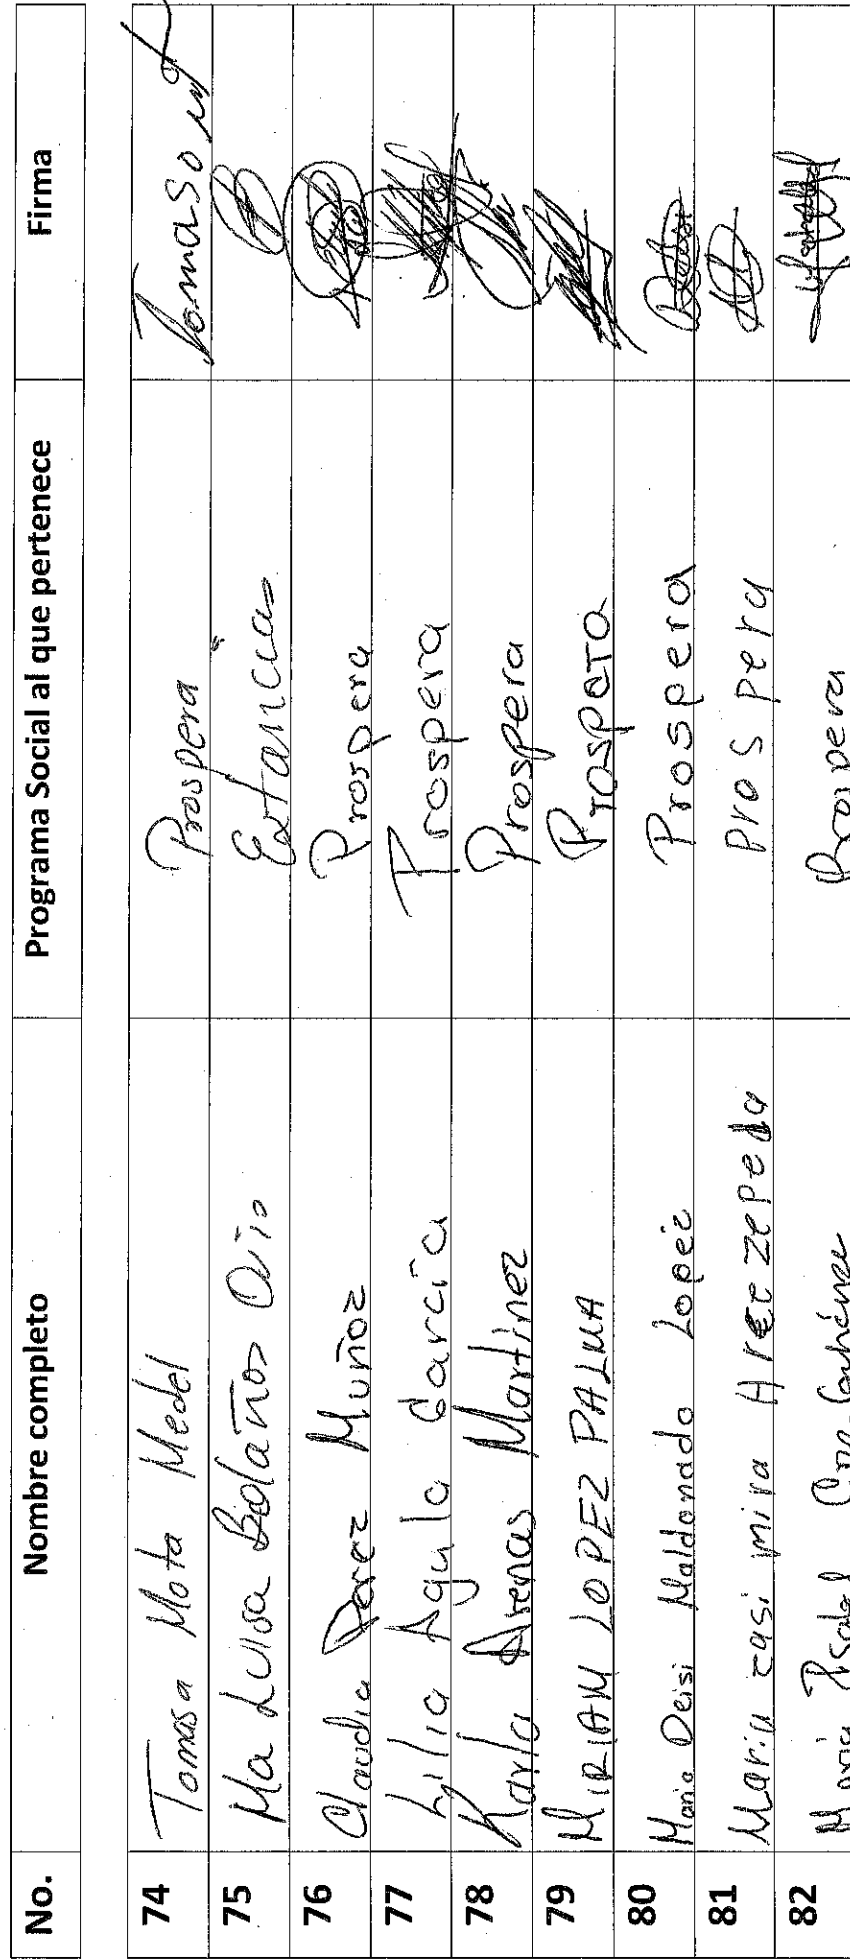 No. Nombre completo Programa Social al que pertenece Firma
74 Tomasa Mota Medel Prospera Tomasa
75 Ma Luisa Bolaños Estancias
76 Claudia Perez Muñoz Prospera
77 Lilia Agula Garcia Prospera
78 Karla Arenas Martinez Prospera
79 MIRIAM LOPEZ PALMA Prospera
80 Maria Deisi Maldonado Lopez Prospera
81 Maria casimira Arce zepeda Prospera
82 Maria Isabel Prospera